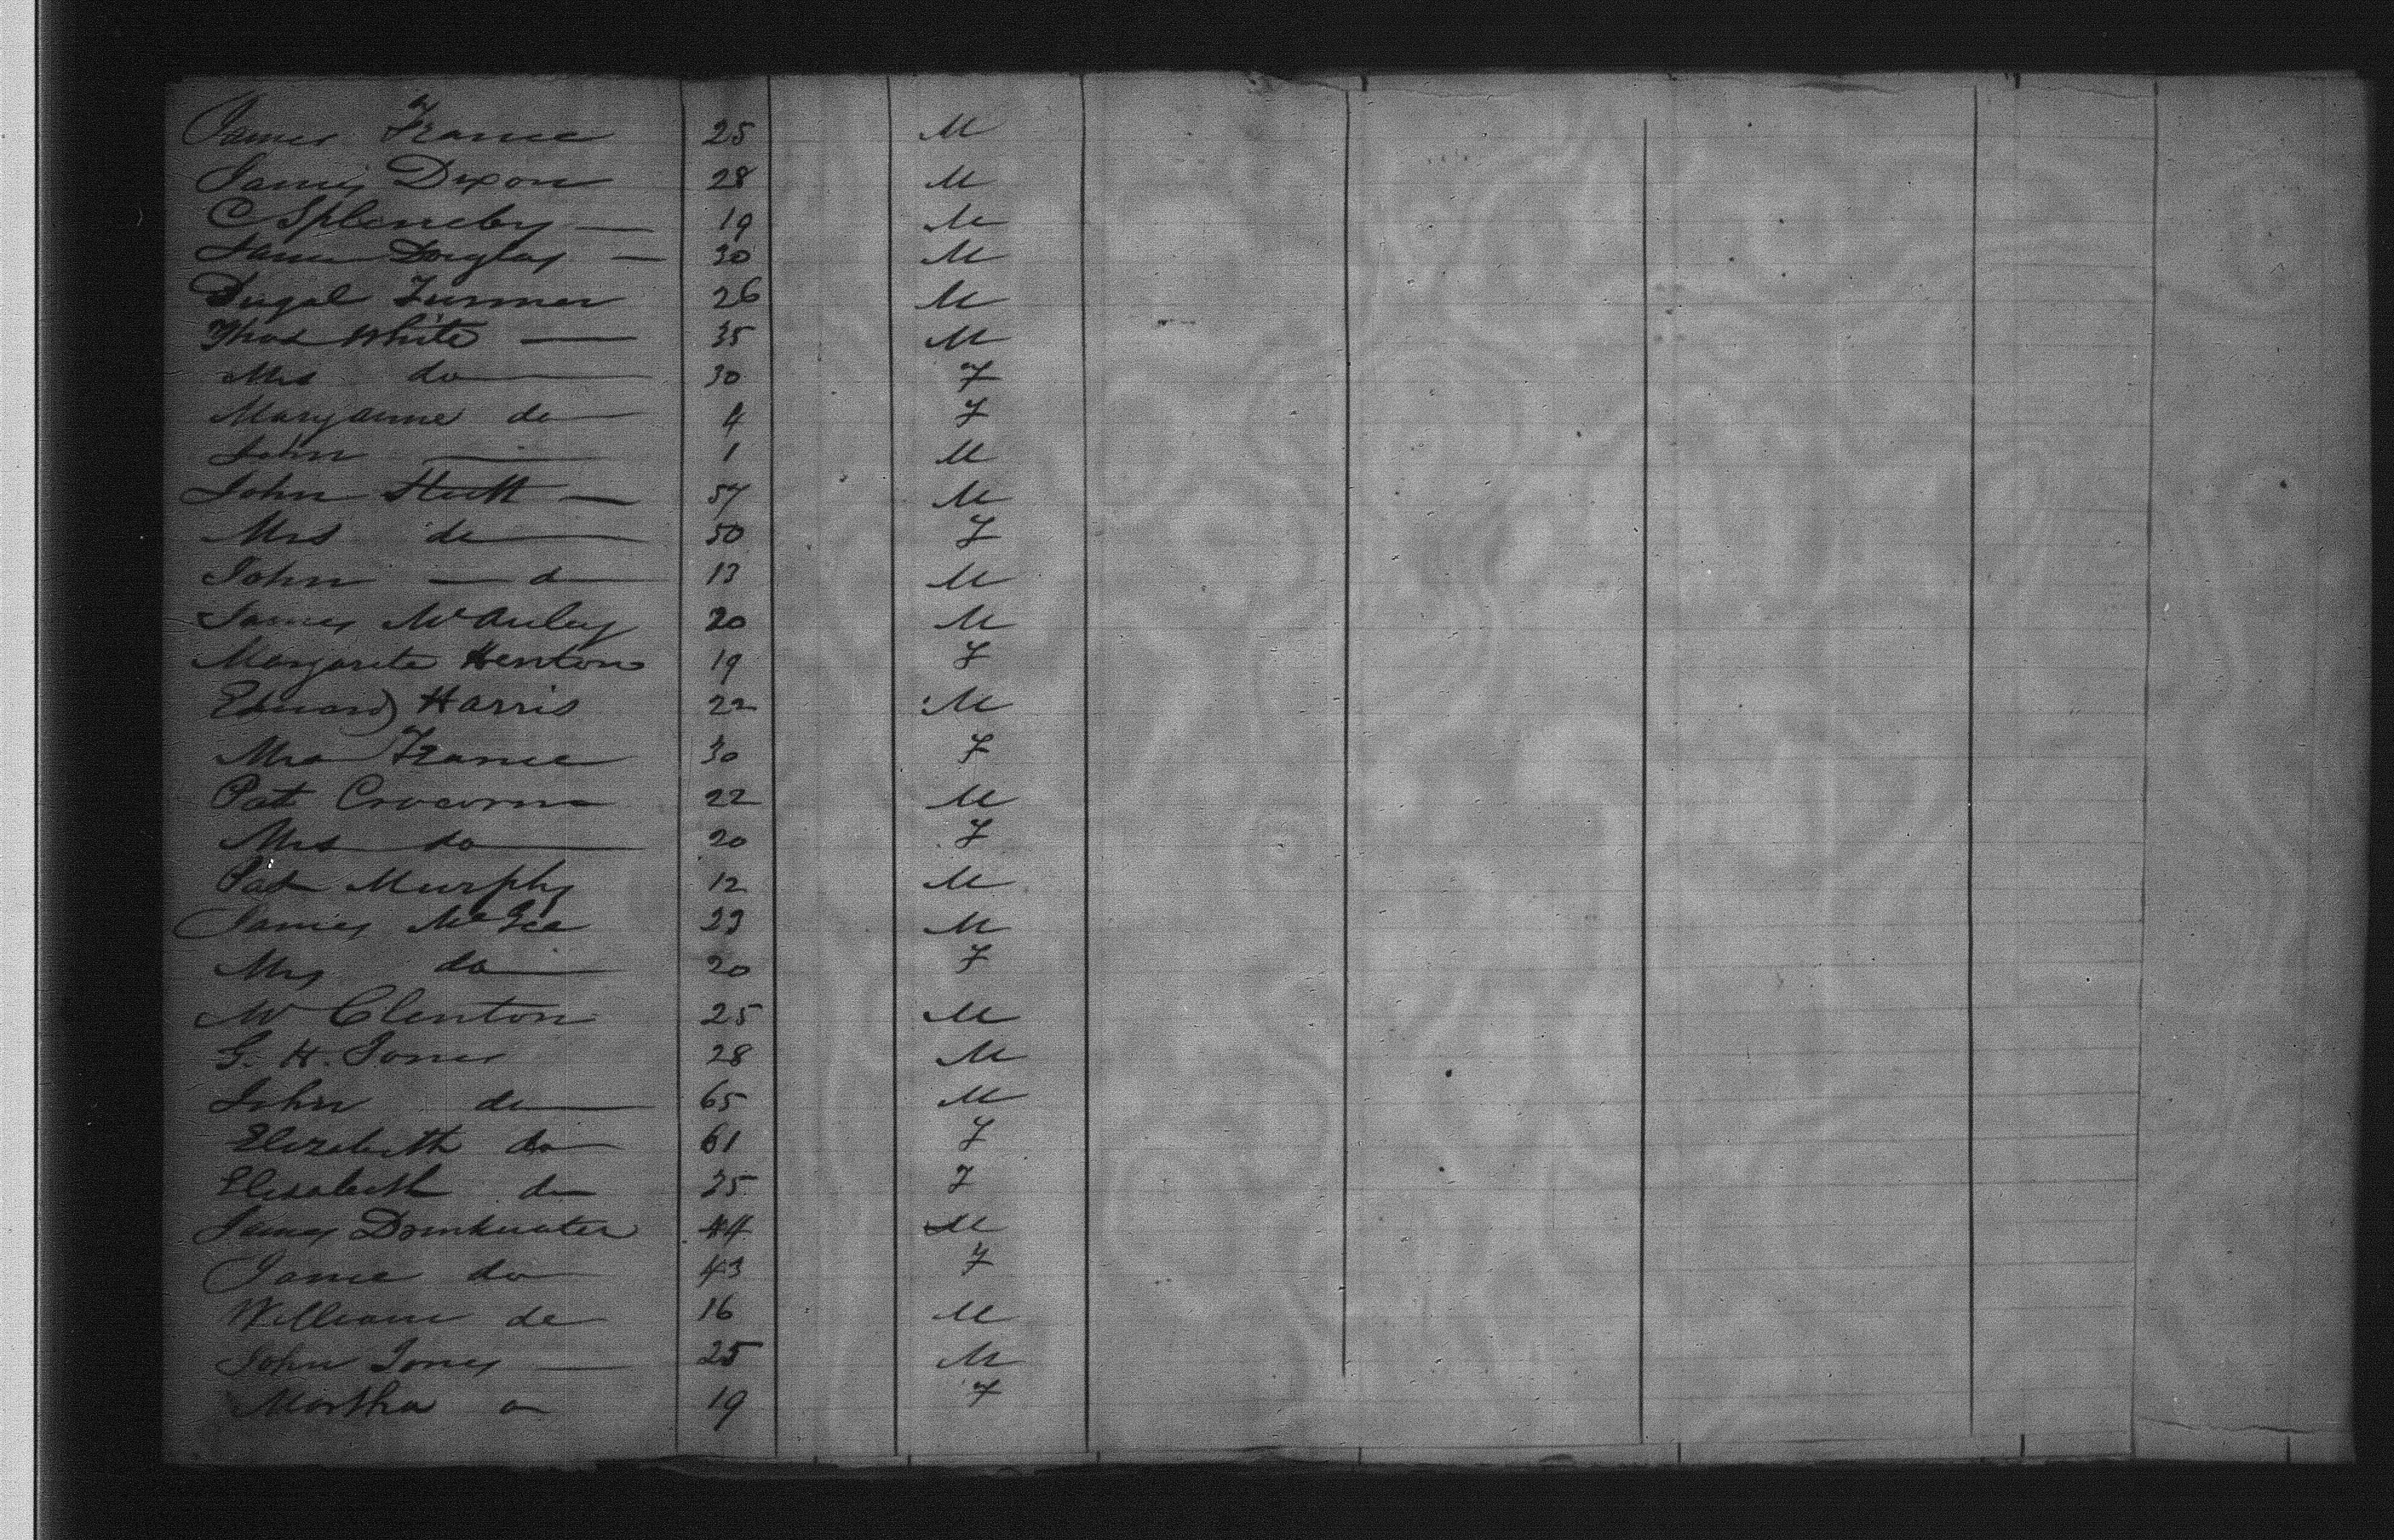 James France 25 M
James Dixon 28 M
C 19 M
James Douglas — 30 M
Dugal Turner 26 M
Thos White — 35 M
Mrs do 30 F
Maryanne do 4 F
John — 1 M
John Stutt — 57 M
Mrs do 50 F
John — d 13 M
James McAuley 20 M
Margarete Henton 19 F
Edward Harris 22 M
Mrs France 30 F
Pat 22 M
Mrs do 20 F
Pat Murphy 12 M
James McGee 23 M
Mrs do 20 F
Mr Clenton 25 M
G. H. Jones 28 M
John do 65 M
Elizabeth do 61 F
Elisabeth do 35 F
James Drinkwater 44 M
Jane do 43 F
William do 16 M
John Jones — 25 M
Martha 19 F